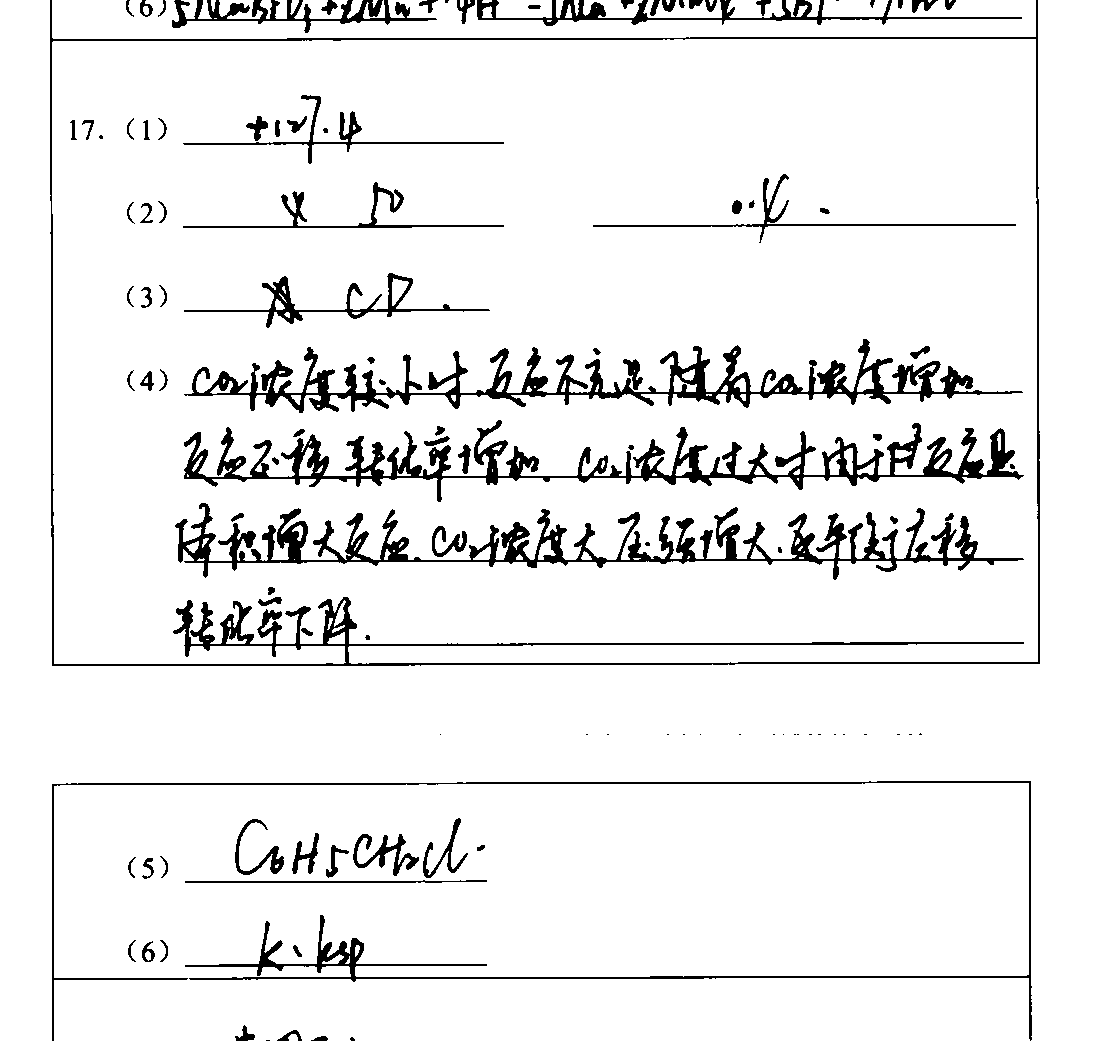 (6) 5NaBiO₃+2Mn
17. (1) +127.4
(2) 4 50 0.4.
(3) CD.
(4) CO₂浓度较小时,反应不充足,随着CO₂浓度增加
反应正移,转化率增加. CO₂浓度过大时由于该反应是
体积增大反应,CO₂浓度大,压强增大,平衡左移,
转化率下降.
(5) C₆H₅CH₂Cl.
(6) K·Ksp